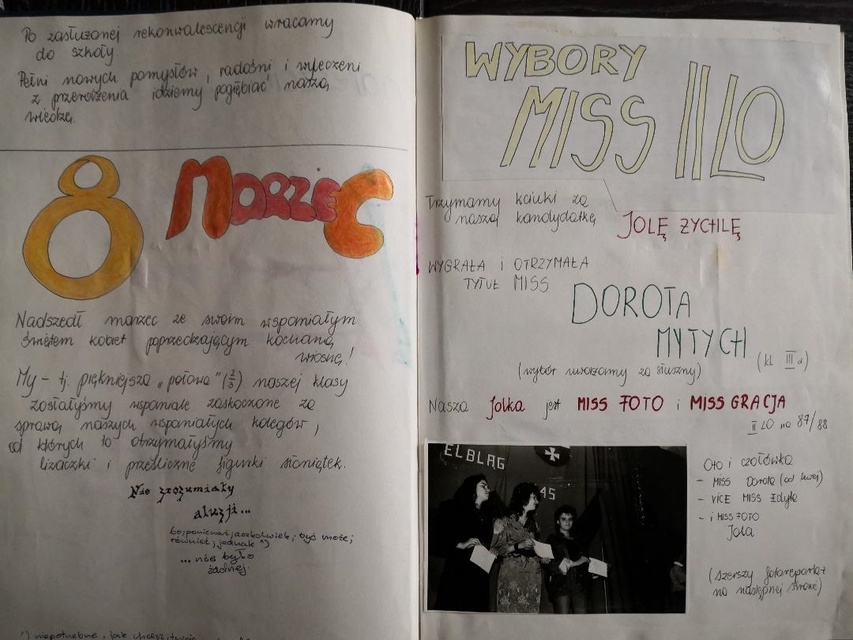 Po zasłużonej rekonwalescencji wracamy
do szkoły
Pełni nowych pomysłów, radośni i wyleczeni
z przerażenia idziemy pogłębiać naszą
wiedzę.
8 MARZEC
Nadszedł marzec ze swoim wspaniałym
świętem kobiet poprzedzającym kochaną
wiosnę!
My - tj. piękniejsza „połowa" (2/3) naszej klasy
zostałyśmy wspaniale zaskoczone za
sprawą naszych wspaniałych kolegów,
od których to otrzymałyśmy
lizaczki i prześliczne figurki słoniątek.
Nie zrozumiały
aluzji...
bo, ponieważ, aczkolwiek, być może,
również, jednak *)
... nie było
żadnej
*) niepotrzebne
WYBORY
MISS II LO
Trzymamy kciuki za
naszą kandydatkę JOLĘ ZYCHLĘ
WYGRAŁA I OTRZYMAŁA
TYTUŁ MISS
DOROTA
MYTYCH
(kl III d)
(wybór uważamy za słuszny)
Nasza Jolka jest MISS FOTO i MISS GRACJA
II LO na 87/88
ELBLĄG
45
Oto i czołówka
- MISS Dorota (od lewej)
- VICE MISS Edyta
- i MISS FOTO
Jola
(szerszy fotoreportaż
na następnej stronie)